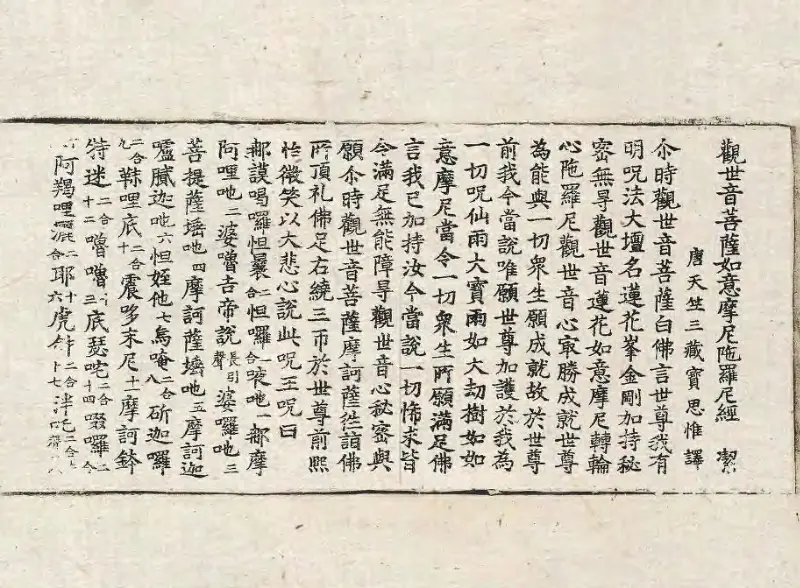 觀世音菩薩如意摩尼陁羅尼經　潔
唐天竺三藏寶思惟譯
尒時觀世音菩薩白佛言世尊我有
明呪法大壇名蓮花峯金剛加持秘
密無导觀世音蓮花如意摩尼轉輪
心陁羅尼觀世音心冣勝成就世尊
為能與一切衆生願成就故於世尊
前我今當說唯願世尊加護於我為
一切呪仙雨大寶雨如大劫樹如如
意摩尼當令一切衆生所願滿足佛
言我已加持汝今當說一切悕求皆
令滿足無能障导觀世音心秘密與
願尒時觀世音菩薩摩訶薩徃詣佛
所頂礼佛足右繞三帀於世尊前熙
怡微笑以大悲心說此呪王呪曰
那謨曷囉怛曩二合怛囉二合哾吔一那摩
阿哩吔二婆嚕吉帝說長引聲婆囉吔三
菩提薩埵吔四摩訶薩埵吔五摩訶迦
嚧膩迦吔六怛姪他七烏唵八二合斫迦囉
九二合靺哩底十二合震哆末尼十一摩訶鉢
特迷十二二合嚕嚕十三底瑟咤二合十四啜囉二合
阿羯哩灑二合耶十六虎𤙖十七